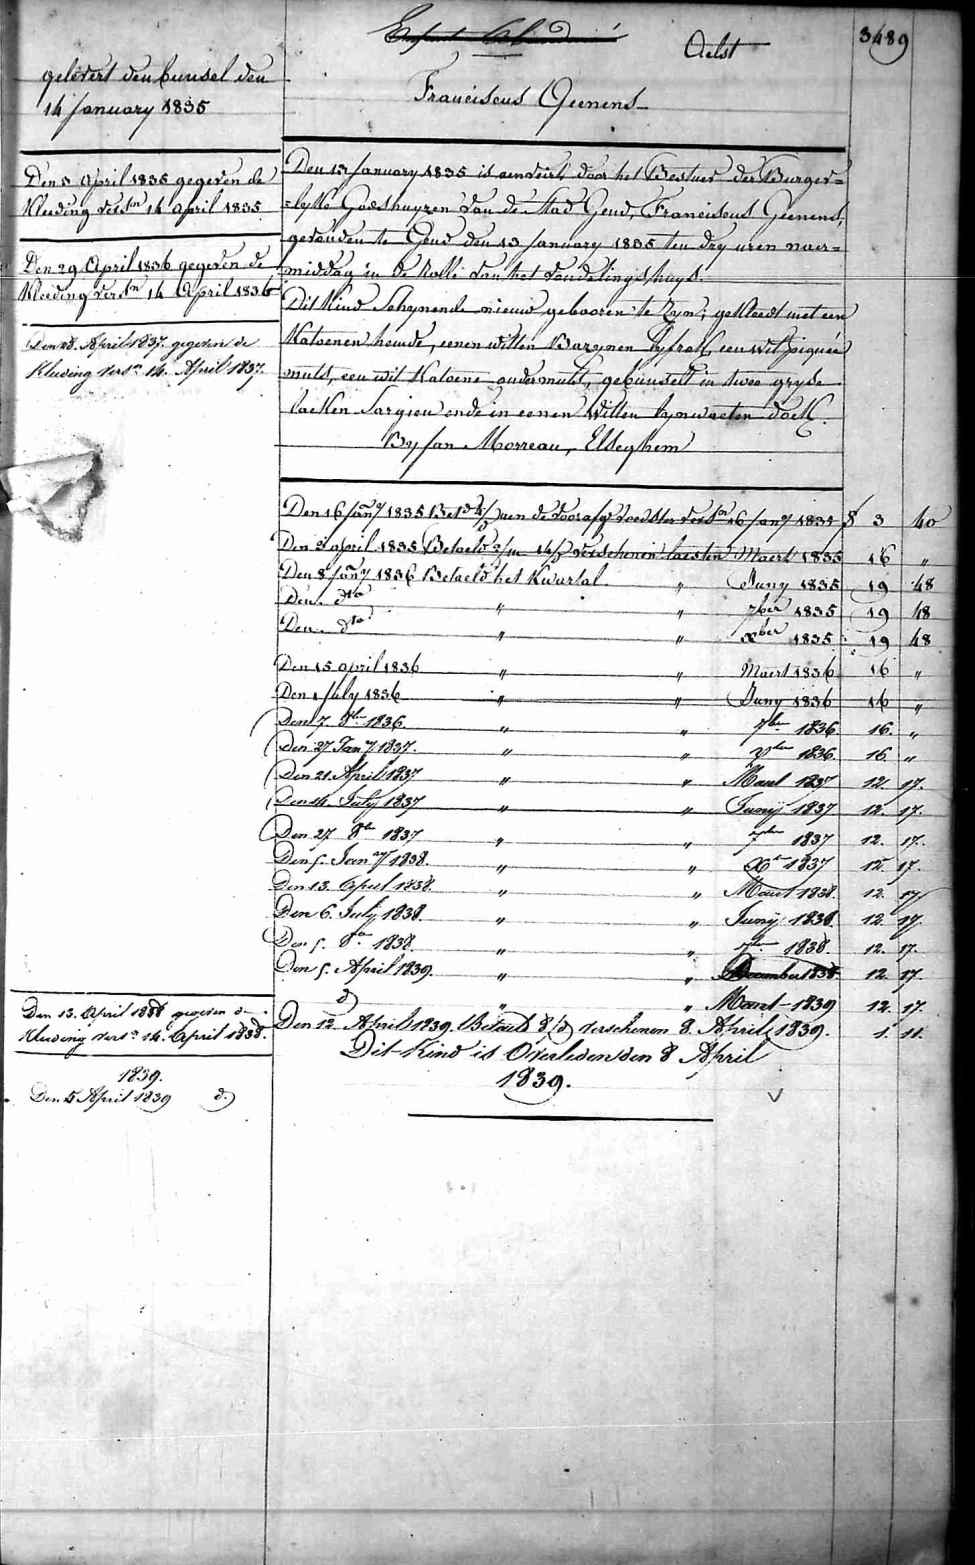 Enfant Abandonné
Aelst
3489
Franciscus Geenens
gelevert den bunsel den
14 January 1835
Den 3 April 1835 gegeven de
Kleeding versn 14 April 1835
Den 29 April 1836 gegeven de
Kleeding versn 14 April 1836
Den 28. April 1837. gegeven de
Kleeding versn 14. April 1837.
Den 13 January 1835 is aenveirt door het Bestuer der Burger=
=lyke Godshuyzen van de Stad Gend, Franciscus Geenens,
gevonden te Gend den 13 January 1835 ten dry uren naer=
middag in de Rolle van het vondelingshuys.
Dit Kind schynende nieuw gebooren te Zyn, gekleedt met een
Katoenen hemde, eenen witten Bazynen lyfrok, een wit piquée
muts, een wit Katoene ondermuts, gebunselt in twee gryse
laeken sargien ende in eenen witten lynwaeten doek.
By Jan Morreau, Elseghem
Den 16 Jany 1835 Bet d aen de voorafge voedster versn 16 Jany 1835 f 3 40
Den 3 april 1835 Betaeld verschenen laesten Maert 1835 16 "
Den 8 Jany 1836 Betaeld het Kwartal. " Juny 1835 19 48
Den dto " " 7ber 1835 19 48
Den dto " " xber 1835 19 48
Den 15 april 1836 " " Maert 1836 16 "
Den 1 July 1836 " " Juny 1836 16 "
Den 7. 8br 1836. " " 7ber 1836. 16. "
Den 27 Jany 1837. " " xber 1836. 16 "
Den 21. April 1837 " " Maert 1837 12. 17.
Den 14. July 1837 " " Junij 1837 12. 17.
Den 27. 8br 1837 " " 7ber 1837 12. 17.
Den 5. Jany 1838. " " Xbr 1837 12. 17.
Den 13. April 1838. " " Maert 1838. 12. 17
Den 6. July 1838. " " Junij 1838. 12. 17
Den 5. 8br 1838. " " 7ber 1838 12. 17.
Den 5. April 1839. " " December 1838 12. 17.
d " " Maert 1839 12. 17.
Den 12. April 1839. Betaeld 8/d verschenen 8. April 1839. 1. 11.
Dit Kind is Overleden den 8 April
1839.
Den 13. April 1838 gegeven d
Kleeding versn 14. April 1838.
1839.
Den 5 April 1839 d.